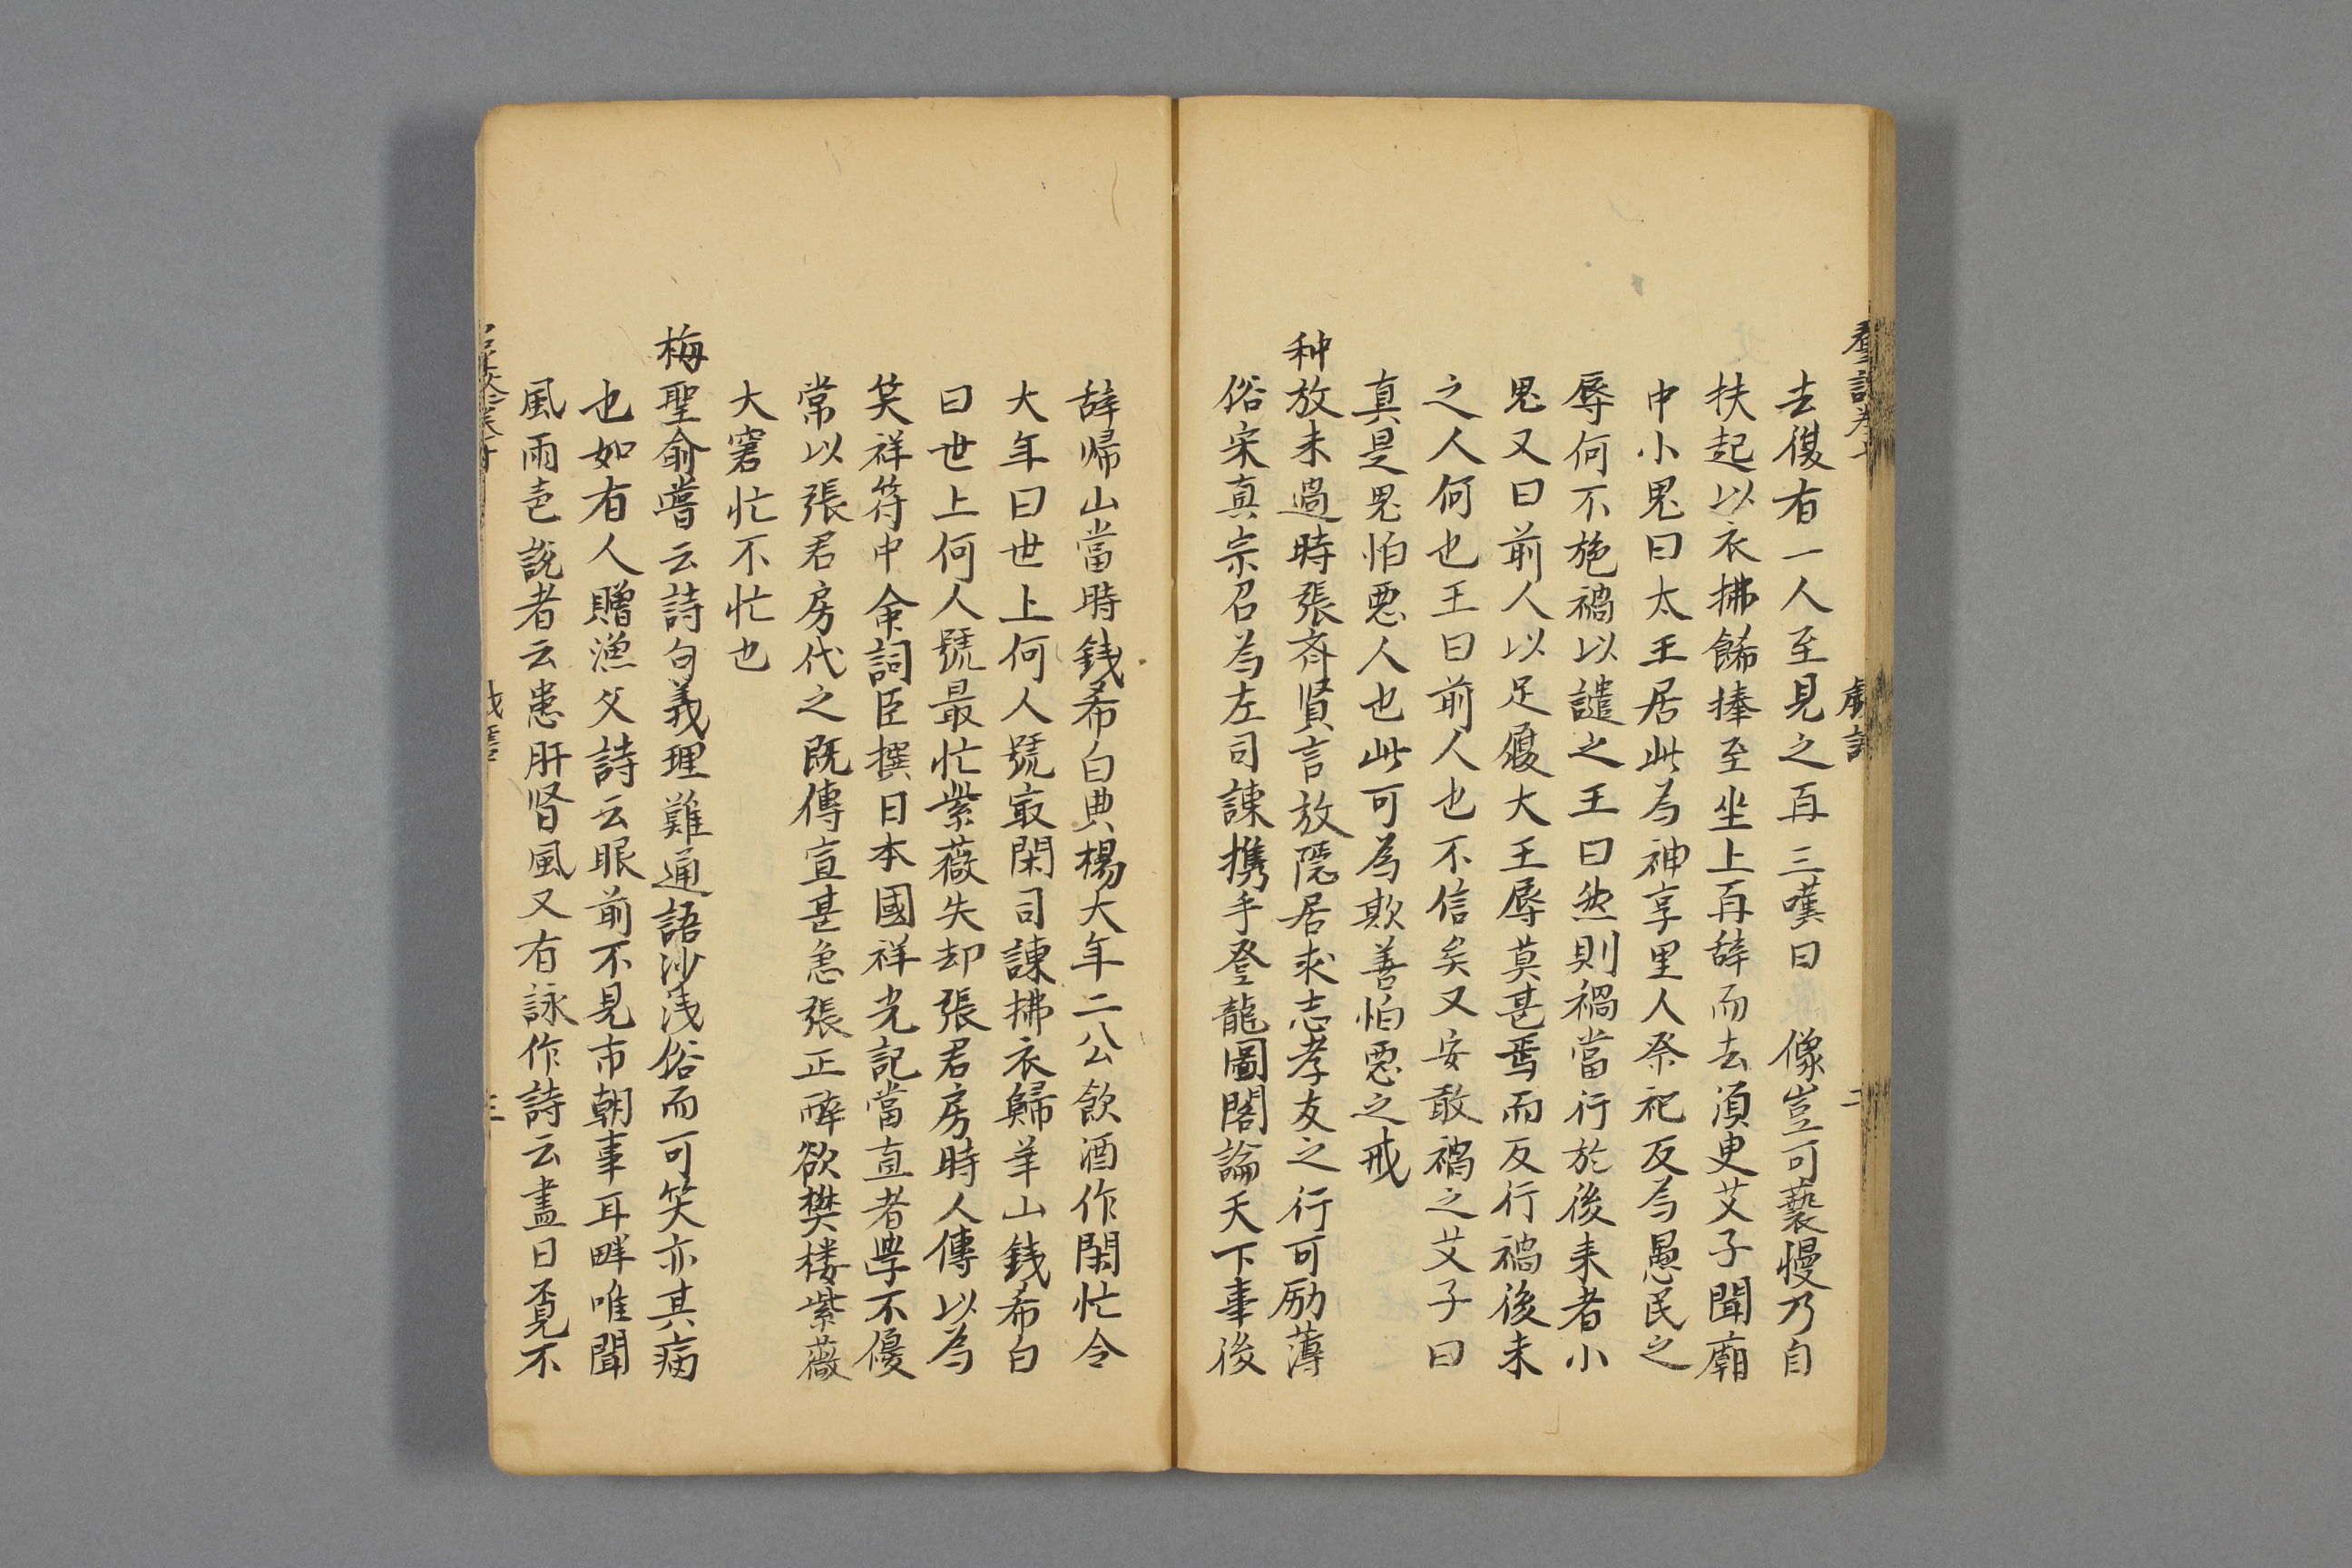 去復有一人至見之再三嘆曰　像豈可褻慢乃自
扶起以衣拂餙捧至坐上再辞而去湏更艾子聞廟
中小鬼曰太王居此為神享里人祭祀反為愚民之
辱何不施禍以譴之王曰然則禍當行於後来者小
鬼又曰前人以足履大王辱莫甚焉而反行禍後来
之人何也王曰前人也不信矣又安敢禍之艾子曰
真是鬼怕悪人也此可為欺善怕悪之戒
种放未過時張齊賢言放隠居求志孝友之行可励薄
俗宋真宗召為左司諫携手登龍圖閣論天下事後
辞帰山當時銭希白典楊大年二公飲酒作閑忙令
大年曰世上何人號最閑司諫拂衣歸華山銭希白
曰世上何人號最忙紫薇失却張君房時人傳以為
笑祥符中命詞臣撰日本國祥光記當直者學不優
常以張君房代之既傳宣甚急張正醉飲樊楼紫薇
大窘忙不忙也
梅聖俞嘗云詩句義理難通語渉浅俗而可笑亦其病
也如有人贈漁父詩云眼前不見市朝事耳畔唯聞
風雨声説者云患肝腎風又有詠作詩云盡日覓不